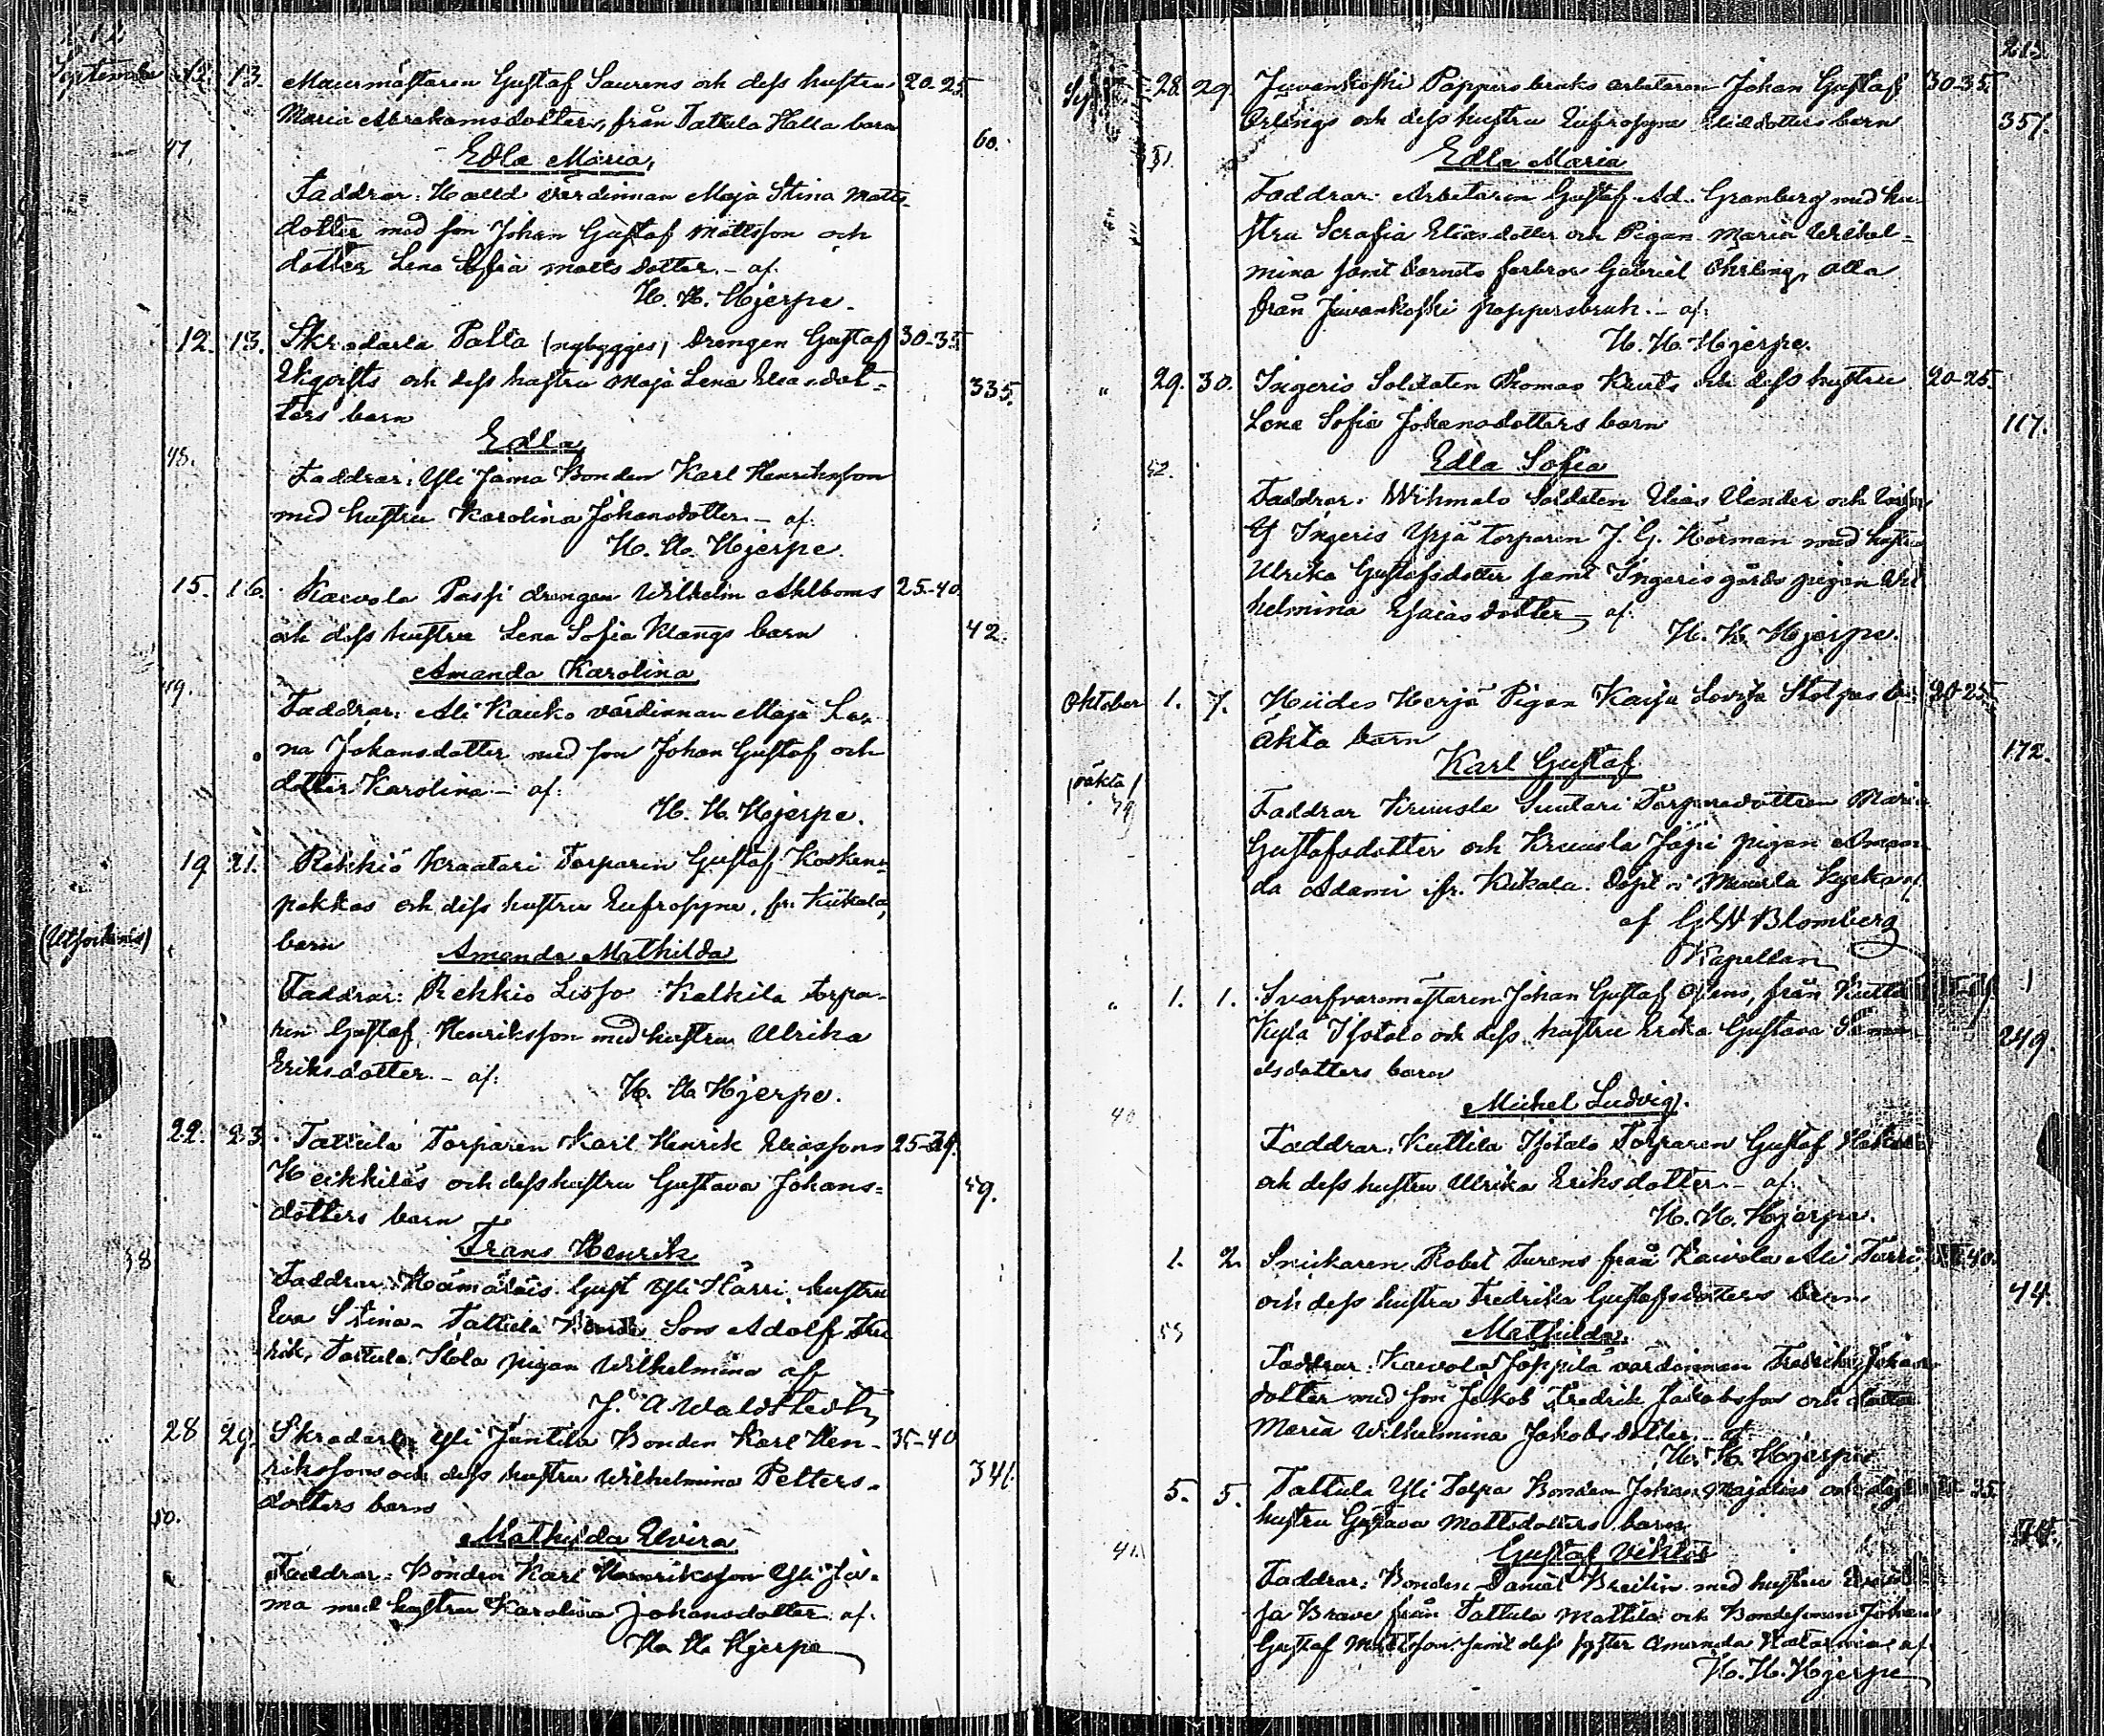 212.
September 12. 13. Murmästaren Gustaf Saurens och dess hustru 20-25.
Maria Abrahamsdotters, från Tattula Halla barn
47. 60.
Edla Maria,
Faddrar: Halld värdinnan Maja Stina Matts-
dotter med son Johan Gustaf Mattsson och
dotter Lena Sofia Matts dotter. – af:
H. H. Hjerpe.
12. 13. Skradarla Palla (nybygges) Drengen Gustaf 30-35
Ekqvists och dess hustru Maja Lena Eliasdot-
335.
ters barn
Edla
48.
Faddrar: Yli Jama Bonden Karl Henriksson
med hustru Karolina Johansdotter – af:
H. H. Hjerpe.
15. 16. Kaevola Passi drengen Wilhelm Ahlboms 25-40.
och dess hustru Lena Sofia Klangs barn 42.
Amanda Karolina
49.
Faddrar: Ali Kauko värdinnan Maja Le-
na Johansdotter med son Johan Gustaf och
dotter Karolina – af:
H. H. Hjerpe.
19 21. Rekkiö Kraatari Torparen Gustaf Kosken-
pekkas och dess hustru Eufrosyne, fr. Kiikala,
(Utsocknes) barn
Amanda Mathilda
Faddrar: Rekkio Kalkila torpa-
ren Gustaf Henriksson med hustru Ulrika
Eriksdotter. – af:
H. H. Hjerpe.
22. 23. Tattula Torparen Karl Henrik Eliassons 25-29.
Heikkiläs och dess hustru Gustava Johans-
59.
dotters barn
38 Frans Henrik
Faddrar: Hämäläis Gust Yli Härri, hustru
Eva Stina – Tattula Son Adolf
rik, Tattula pigan Wilhelmina af
J. A. Waldstedt
28 29. Skradarla Yli Jäntila Bonden Karl Hen- 35-40
rikssons och dess hustru Wilhelmina Petters-
341.
dotters barn
50.
Mathilda Elvira
Faddrar: Bonden Karl Henriksson Yli Ja-
ma med hustru Karolina Johansdotter af:
H. H. Hjerpe
213.
28. 29. Juvankoski Pappersbruks arbetaren Johan Gustaf 30-35.
Örlings och dess hustru Eufrosyne barn
357.
51. Edla Maria
Faddrar: Arbetaren Gustaf Ad. Granberg med hu-
stru Serafia Eliasdotter och Pigan Maria Wilhel-
mina samt barnets farbror Gabriel Öhrling, alla
från Juvankoski pappersbruk. – af:
H. H. Hjerpe.
" 29. 30. Ingeris Soldaten Thomas Kruts och dess hustru 20-25.
Lena Sofia Johansdotters barn 117.
52. Edla Sofia
Faddrar: Wihmalo Soldaten Elias Elender och
Ingeris Yrjä torparen J. G. Hörman med hustru
Ulrika Gustafsdotter samt Ingeris gårds pigan Wil
helmina Esaiasdotter – af:
H. H. Hjerpe.
Oktober 1. 7. Hiides Herjä Pigan Kaisa Lovisa Stolpas o- 20-25
äkta barn
172.
Karl Gustaf
(oäkta)
39
Faddrar Kruusla Suutari Torparedottren Maria
Gustafsdotter och Kruusla Jäpi pigan Aman-
da Adami ifr. Kiikala. Döpt i Muurla Kyrka af
af G W Blomberg
Kapellan
" 1. 1. Svarfvaremästaren Johan Gustaf från Kutti
Kylä Isotalo och dess hustru Erika Gustava
249.
elsdotters barn
Michel Ludvig.
40
Faddrar: Kuttila Isotalo Torparen Gustaf
och dess hustru Ulrika Eriksdotter. – af:
H. H. Hjerpe.
1. 2. Snickaren Robet Turens från Kaivola Ali Tarri 40.
och dess hustru Fredrika Gustafsdotters barn 44.
53 Mathilda.
Faddrar: Kaevola Joppila värdinnan Fredrika Johans
dotter med son Jakob Fredrik Jakobsson och dotter
Maria Wilhelmina Jakobsdotter. – af
H. H. Hjerpe
5. 5. Tattula Yli Talpa Bonden Johan och dess 35.
hustru Gustava Mattsdotters barn
41. Gustaf Viktor
Faddrar: Bonden Daniel Breilin med hustru
sa Brave från Tattula Mattila och Bondesonen Johan
Gustaf Mattsson samt dess syster Amanda Katarina af
H. H. Hjerpe